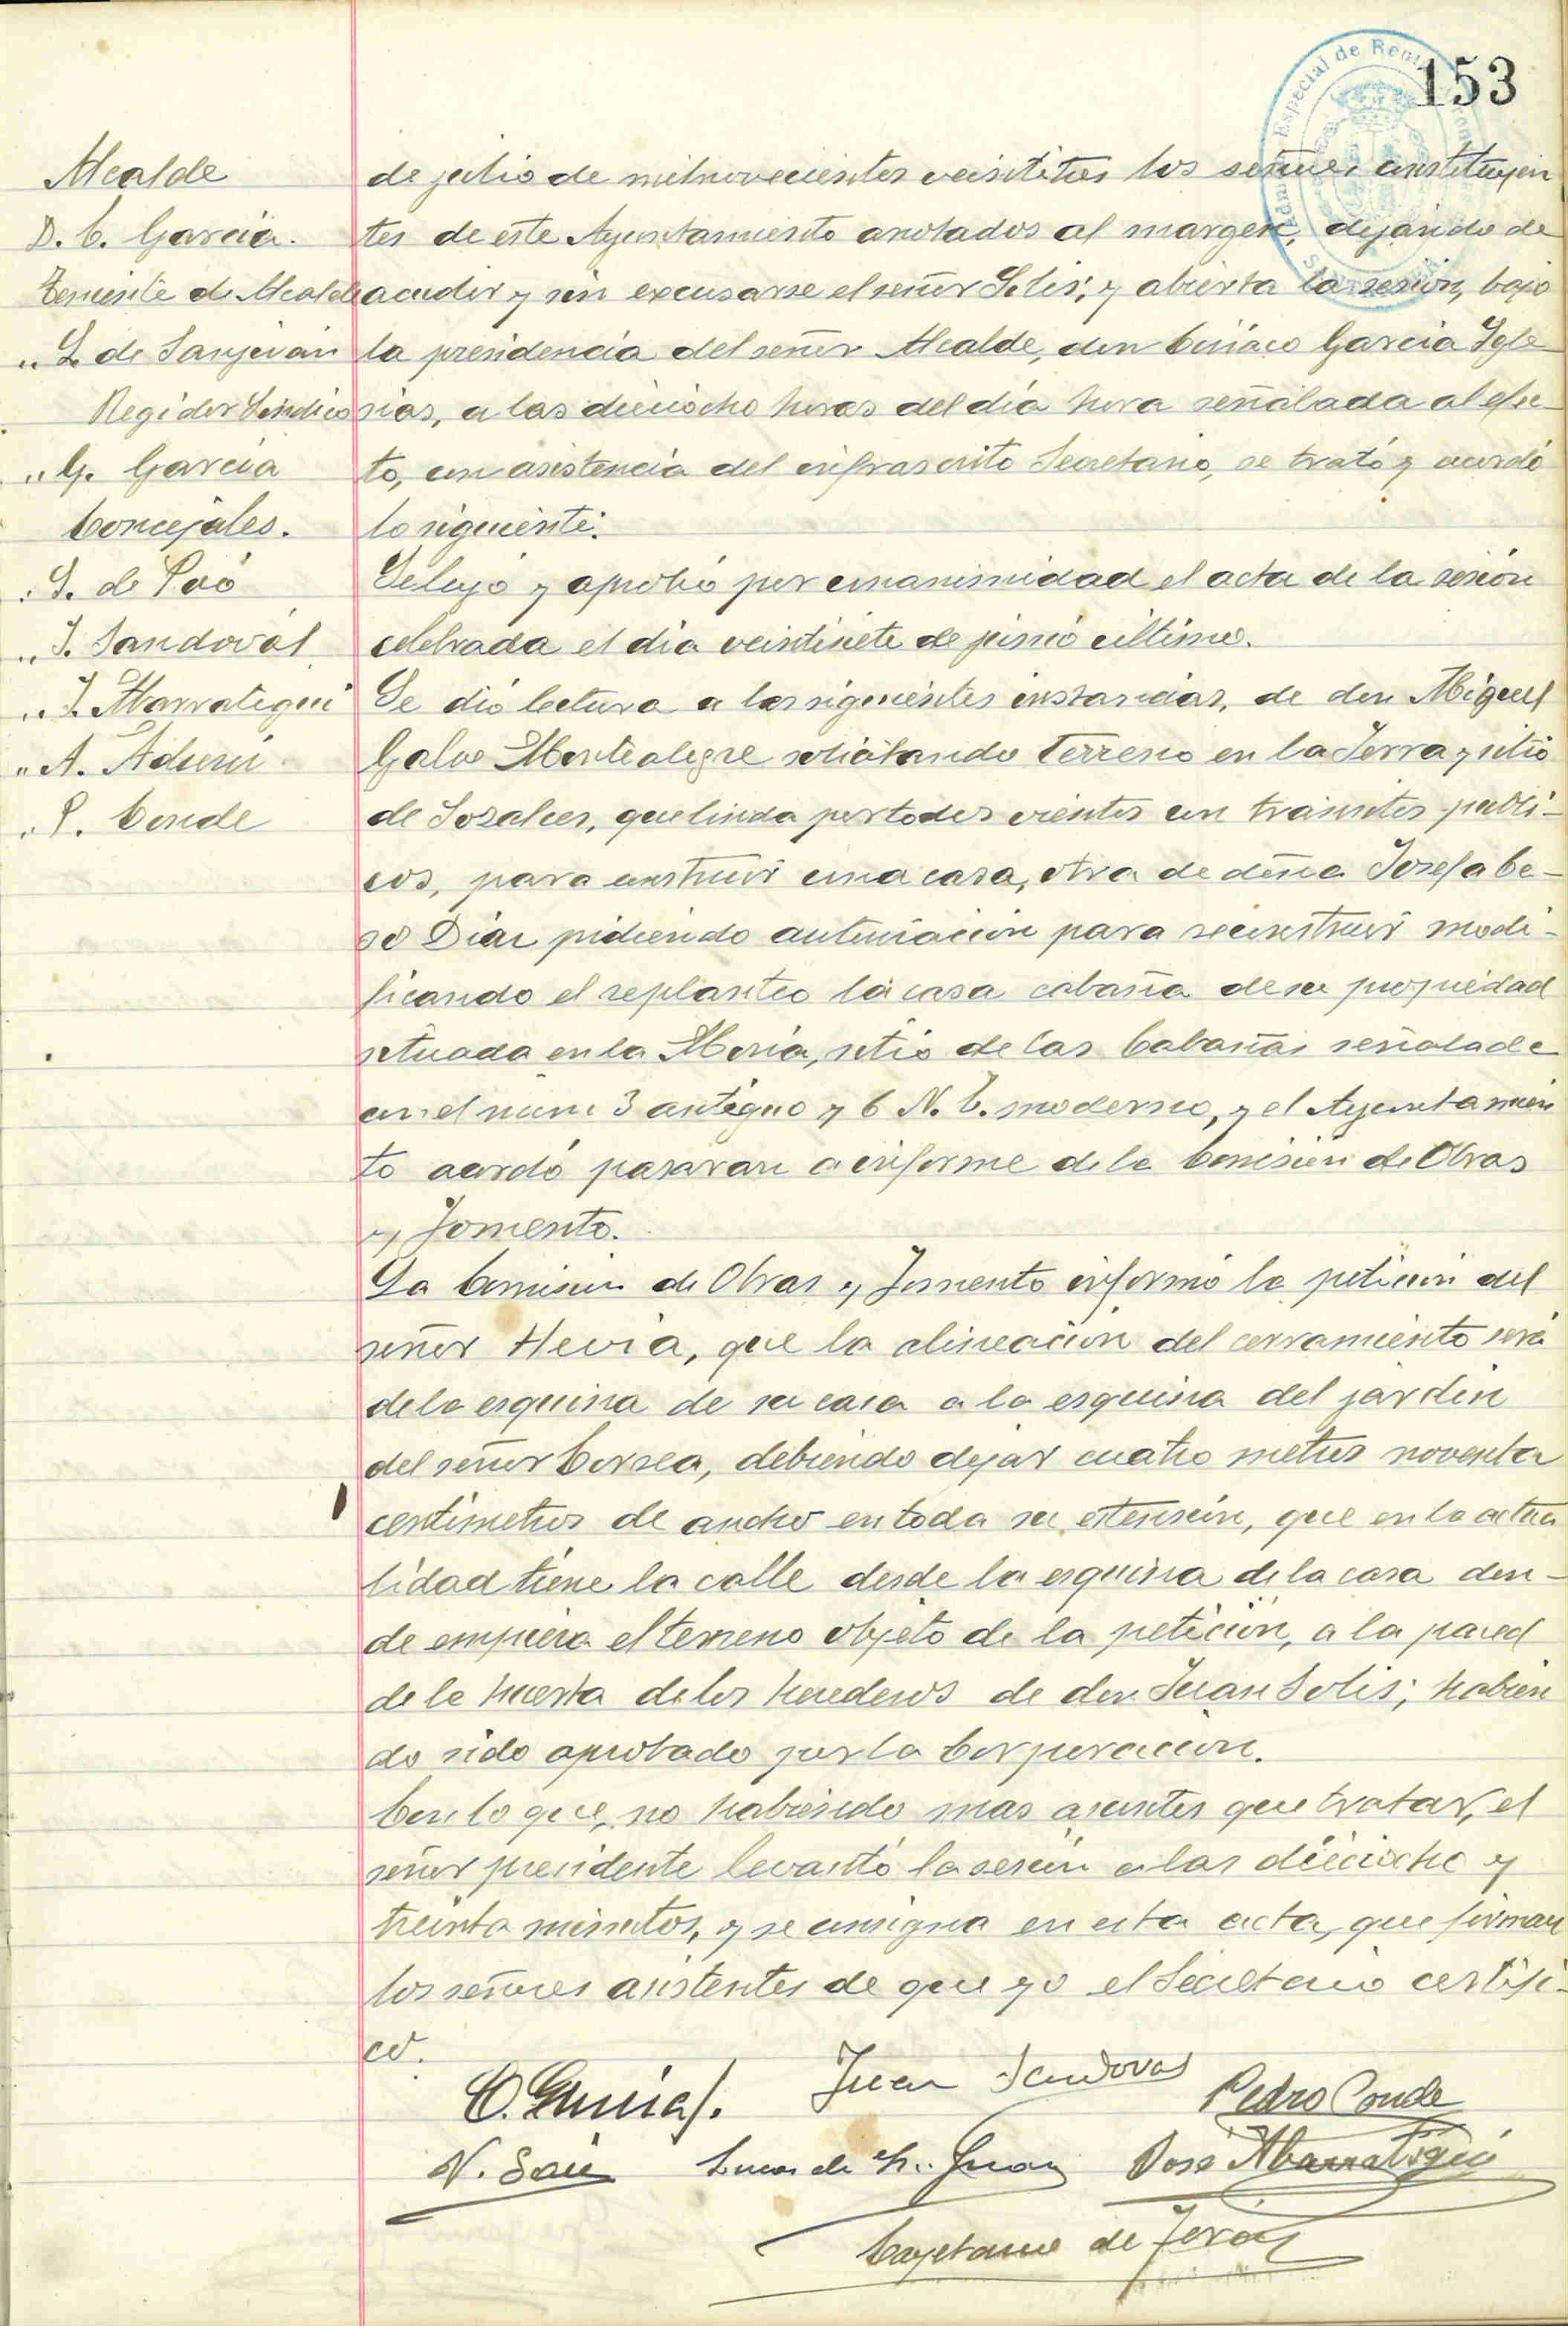 153
Especial de Rent
Alcalde
D. C. García.
Teniente de Alcalde
" L. de Sanjuán
Regidor Síndico
" G. García
Concejales.
" J. Sandoval
" J. Abarrategui
" A.
" P. Conde
de julio de milnovecientos veintitres los señores constituyen
tes de este Ayuntamiento anotados al margen, dejando de
acudir y sin excusarse el señor Solis; y abierta la sesión, bajo
la presidencia del señor Alcalde, don Ciriaco García Igle
sias, a las dieciocho horas del día hora señalada al efec-
to, con asistencia del infrascrito Secretario, se trató y acordó
lo siguiente:
Se leyó y aprobó por unanimidad el acta de la sesión
celebrada el día veintisiete de junio último.
Se dió lectura a las siguientes instancias, de don Miguel
Galve Montealegre solicitando terreno en la Serra y sitio
de Sozalces, que linda por todos vientos con tránsitos públi-
cos, para construir una casa, otra de doña Josefa Ce-
so Díaz pidiendo autorización para reconstruir modi-
ficando el replanteo la casa cabaña de su propiedad
situada en la Moría, sitio de las Cabañas señalada
con el núm. 3 antiguo y 6 N. C. moderno, y el Ayuntamien
to acordó pasaran a informe de la Comisión de Obras
y Fomento.
La Comisión de Obras y Fomento informó la petición del
señor Hevia, que la alineación del cerramiento será
de la esquina de su casa a la esquina del jardín
del señor Correa, debiendo dejar cuatro metros noventa
centímetros de ancho en toda su estensión, que en la actua
lidad tiene la calle desde la esquina de la casa don-
de empieza el terreno objeto de la petición, a la pared
de la huerta de los herederos de don Juan Solis; habien
do sido aprobado por la Corporación.
Con lo que, no habiendo mas asuntos que tratar, el
señor presidente levantó la sesión a las dieciocho y
treinta minutos, y se consigna en esta acta, que firman
los señores asistentes de que yo el Secretario certifi-
co.
C. García
Juan Sandoval
Pedro Conde
Lucas de S. Juan
José Abarrategui
Cayetano de